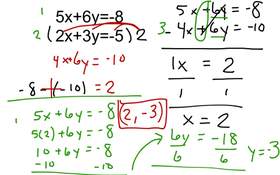 1 5x+6y=-8
2 (2x+3y=-5)2
4x+6y=-10
-8 -(-10) = 2
1 5x+6y=-8
5(2)+6y=-8
10+6y=-8
-10 -10
(2,-3)
5x+6y=-8
3- 4x+6y=-10
1x = 2
1 1
x = 2
6y = -18
6 6
y=-3